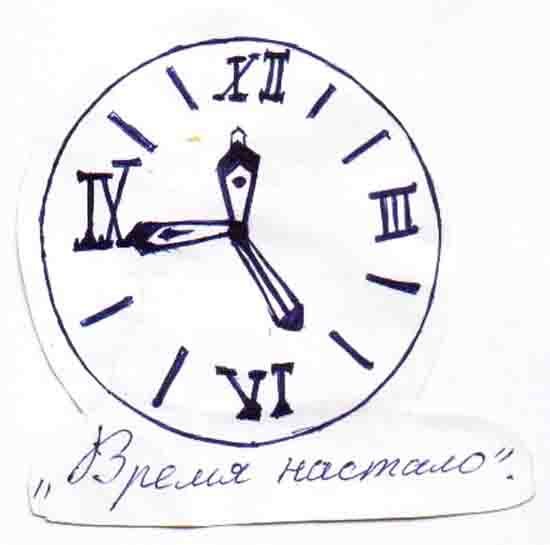 XII
IX III
VI
„Время настало".